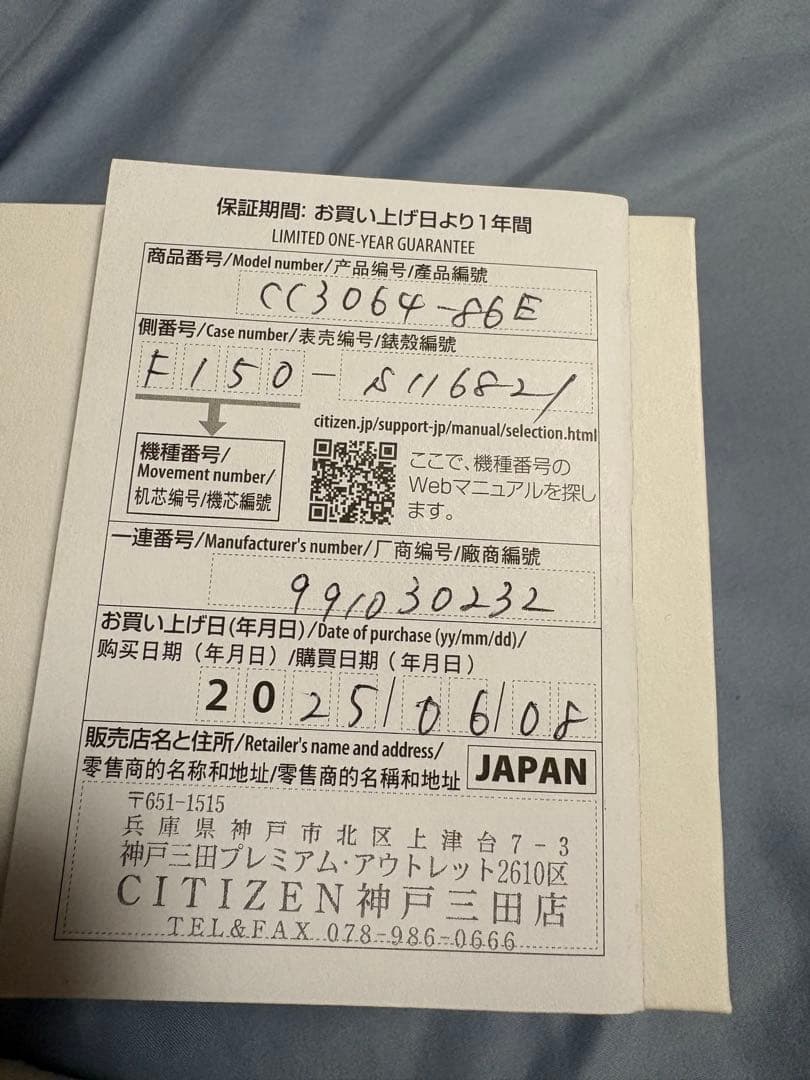 保証期間: お買い上げ日より1年間
LIMITED ONE-YEAR GUARANTEE
商品番号/Model number/产品编号/產品編號
CC3064-86E
側番号/Case number/表壳编号/錶殼編號
F150-S116821
citizen.jp/support-jp/manual/selection.html
機種番号/
Movement number/
机芯编号/機芯編號
ここで、機種番号の
Webマニュアルを探し
ます。
一連番号/Manufacturer's number/厂商编号/廠商編號
991030232
お買い上げ日(年月日)/Date of purchase (yy/mm/dd)/
购买日期（年月日）/購買日期（年月日）
2025/06/08
販売店名と住所/Retailer's name and address/
零售商的名称和地址/零售商的名稱和地址
JAPAN
〒651-1515
兵庫県神戸市北区上津台7-3
神戸三田プレミアム・アウトレット2610区
CITIZEN神戸三田店
TEL&FAX 078-986-0666